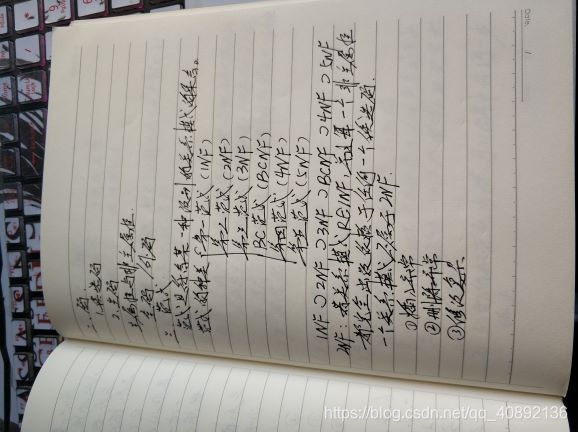 Date. /
一. 码
1. 候选码
2. 主码
3. 主属性与非主属性
主码/外码
二. 范式
范式是符合某一种级别的关系模式的集合。
范式的种类: 第一范式 (1NF)
第二范式 (2NF)
第三范式 (3NF)
BC范式 (BCNF)
第四范式 (4NF)
第五范式 (5NF)
1NF ⊃ 2NF ⊃ 3NF ⊃ BCNF ⊃ 4NF ⊃ 5NF
2NF: 若关系模式R∈1NF, 并且每一个非主属性
都完全函数依赖于任何一个候选码
一个关系模式不属于2NF.
① 插入异常
② 删除异常
③ 修改复杂
https://blog.csdn.net/qq_40892136